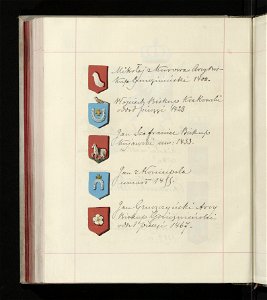 Mikołaj z Kurowa Arcybis-
kup Gnieźnieński 1402.
Wojciech Biskup Krakowski
1423
Jan Szafraniec Biskup
Kujawski um: 1433.
Jan z Koniecpola
umarł 1455.
Jan Gruszczyński Arcy
Biskup Gnieźnieński
1467.